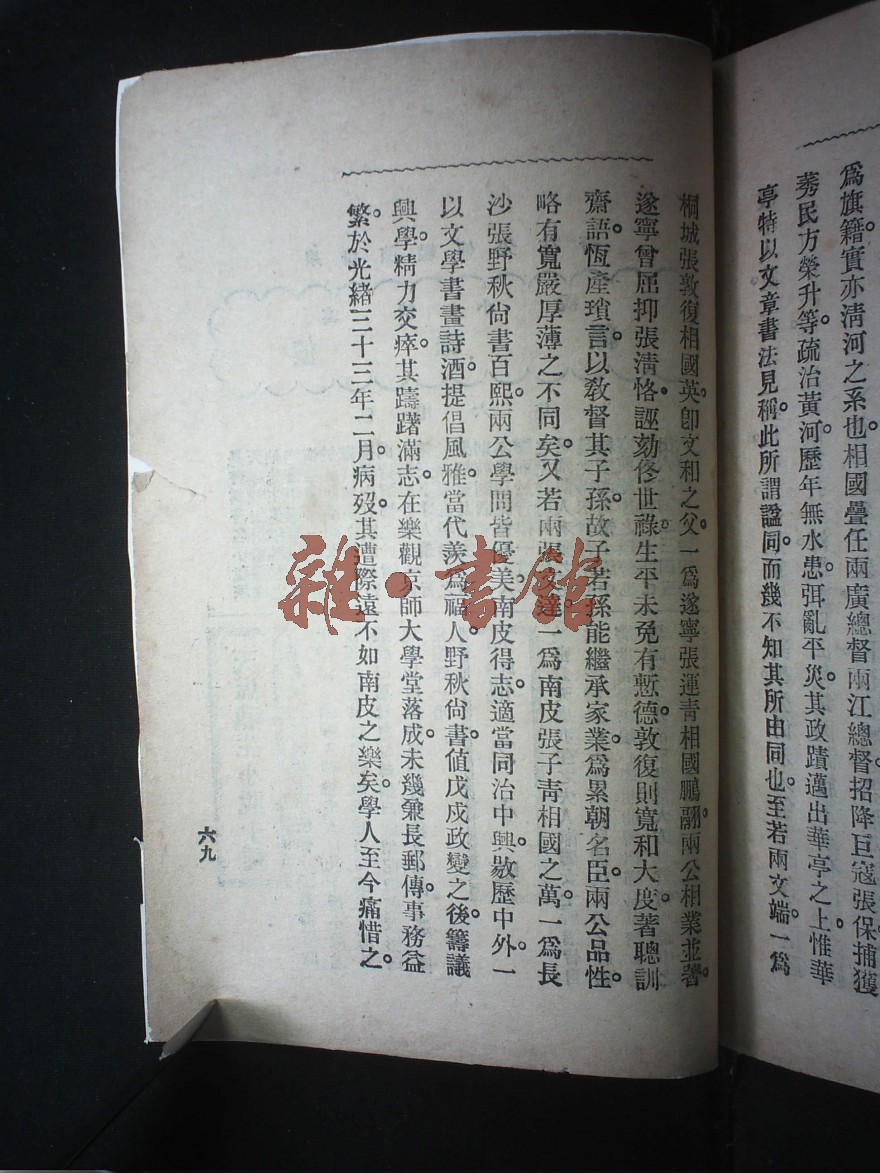 爲旗籍。實亦清河之系也。相國疊任兩廣總督兩江總督。招降巨寇張保。捕獲
莠民方榮升等。疏治黃河。歷年無水患。弭亂平災。其政蹟邁出華亭之上。惟華
亭特以文章書法見稱。此所謂諡同。而幾不知其所由同也。至若兩文端。一爲
桐城張敦復相國英。卽文和之父。一爲遂寧張運青相國鵬翮。兩公相業並著。
遂寧曾屈抑張清恪。誣劾侈世祿。生平未免有慙德。敦復則寬和大度。著聰訓
齋語。恆產瑣言。以敎督其子孫。故子若孫能繼承家業。爲累朝名臣。兩公品性。
略有寬嚴厚薄之不同矣。又若兩張文達。一爲南皮張子青相國之萬。一爲長
沙張野秋尙書百熙。兩公學問皆優美。南皮得志。適當同治中興。敭歷中外。一
以文學書畫詩酒。提倡風雅。當代羨爲福人。野秋尙書。値戊戌政變之後。籌議
興學。精力交瘁。其躊躇滿志。在樂觀京師大學堂落成。未幾兼長郵傳。事務益
繁。於光緒三十三年二月病歿。其遭際遠不如南皮之樂矣。學人至今痛惜之。
六九
雜·書館